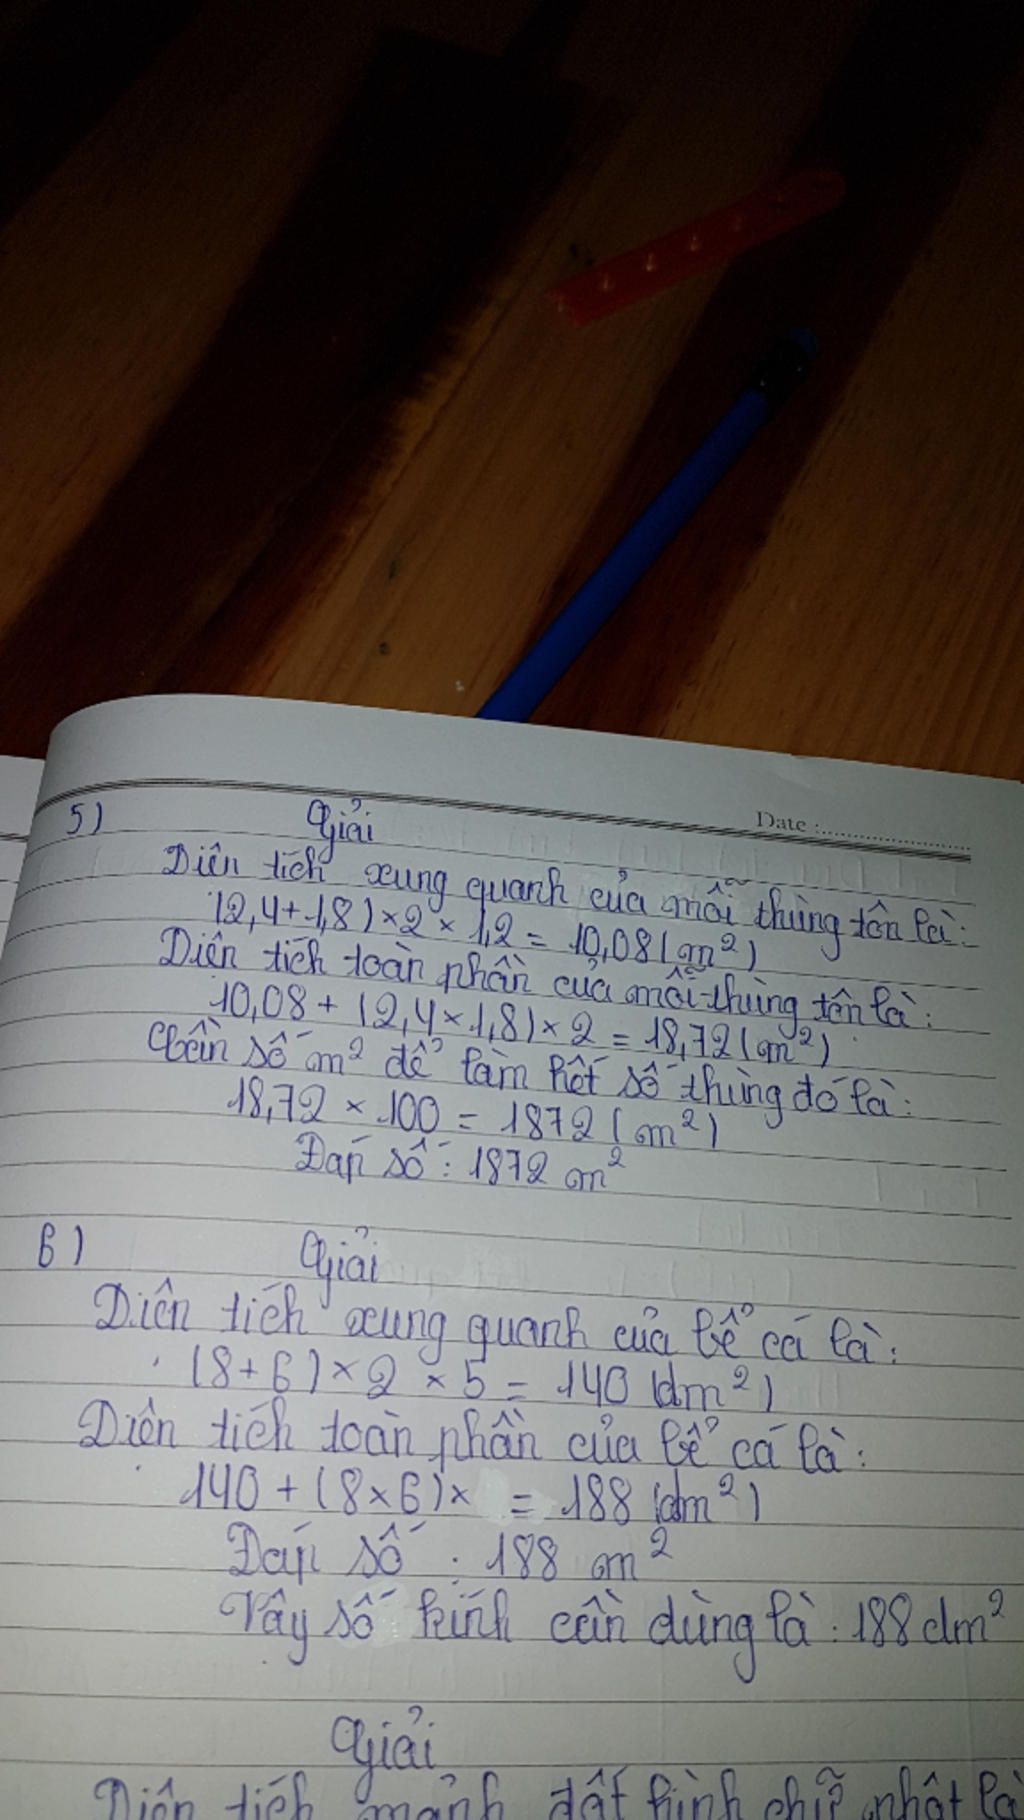 Date :
5) Giải
Diện tích xung quanh của mỗi thùng tôn là:
(2,4+1,8)×2×1,2 = 10,08(m²)
Diện tích toàn phần của mỗi thùng tôn là:
10,08 + (2,4×1,8)×2 = 18,72(m²)
Cần số m² để làm hết số thùng đó là:
18,72 × 100 = 1872 (m²)
Đáp số : 1872 m²
6) Giải
Diện tích xung quanh của bể cá là:
(8+6)×2×5 = 140 (dm²)
Diện tích toàn phần của bể cá là:
140 + (8×6)× = 188 (dm²)
Đáp số : 188 m²
Vậy số kính cần dùng là : 188 dm²
Giải
Diện tích mảnh đất hình chữ nhật là